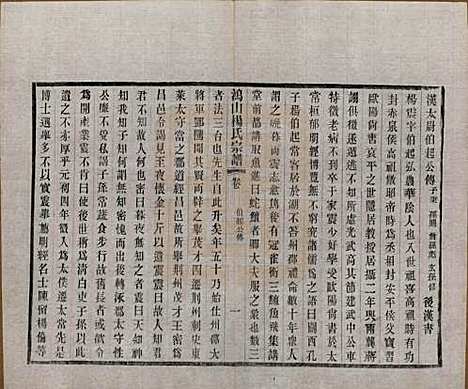 漢太尉伯起公傳 子秉 孫賜 曾孫彪 玄孫修 後漢書
楊震字伯起弘農華陰人八世祖喜高祖時有功
封赤泉侯高祖敞昭帝時爲丞相封安平侯父寶習
歐陽尚書哀平之世隱居教授居攝二年與兩龔蔣
詡俱徵遂遁逃不知所處光武高其節建武中公車
特徵老病不到卒於家震少好學受歐陽尚書於太
常桓郁明經博覽無不窮究諸儒爲之語曰關西孔
子楊伯起常客居於湖不答州郡禮命數十年衆人
謂之晚暮而震志愈篤後有冠雀銜三鱣魚飛集講
堂前都講取魚進曰蛇鱣者卿大夫服之象也數三
鴻山楊氏宗譜 卷 伯起公傳 一
者法三台也先生自此升矣年五十乃始仕州郡大
將軍鄧騭聞其賢而辟之舉茂才四遷荊州刺史東
萊太守當之郡道經昌邑故所舉荊州茂才王密爲
昌邑令謁見至夜懷金十斤以遺震震曰故人知君
君不知故人何也密曰暮夜無知者震曰天知神知
我知子知何謂無知密愧而出後轉涿郡太守性
公廉不受私謁子孫常蔬食步行故舊長者或欲令
爲開產業震不肯曰使後世稱爲清白吏子孫以此
遺之不亦厚乎元初四年徵入爲太僕遷太常先是
博士選舉多不以實震舉薦明經名士陳留楊倫等